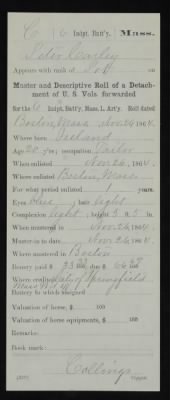 C 6 Indpt. Batt'y. Mass.
Appears with rank of Pvt on
Muster and Descriptive Roll of a Detach-
ment of U. S. Vols. forwarded
for the 6 Indpt. Batty, Mass. L. Art'y. Roll dated
Boston, Mass. Nov. 26, 1864.
Where born Ireland
Age 20 y'rs; occupation
When enlisted Nov. 26, 1864.
Where enlisted Boston, Mass.
For what period enlisted 1 years.
Eyes blue; hair light
Complexion light; height 5 ft. in.
When mustered in Nov. 26, 1864.
Muster-in date Nov. 26, 1864.
Where mustered in Boston
Bounty paid $ 33 100; due $ 66 100
Where credited Springfield
Mass.
Battery to which assigned
Valuation of horse, $ 100
Valuation of horse equipments, $ 100
Remarks:
Book mark:
Collings
Copyist.